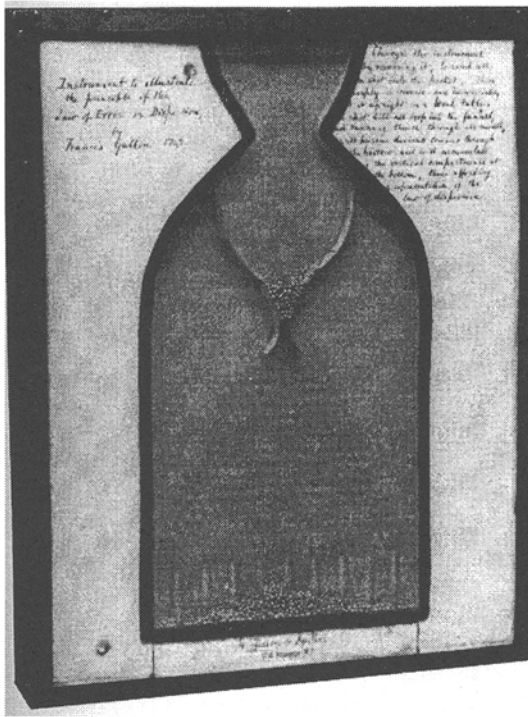 Instrument to illustrate
the principle of the
Law of Error or Dispersion,
by
Francis Galton
Charge the instrument
by reversing it, to send all
the shot into the pocket. Then
sharply re-reverse and immediately
set it upright on a level table.
shot will all drop into the funnel,
and running thence through its mouth,
will pursue devious courses through
the harrow and will accumulate
in the vertical compartments at
the bottom, there affording
a representation of the
law of dispersion